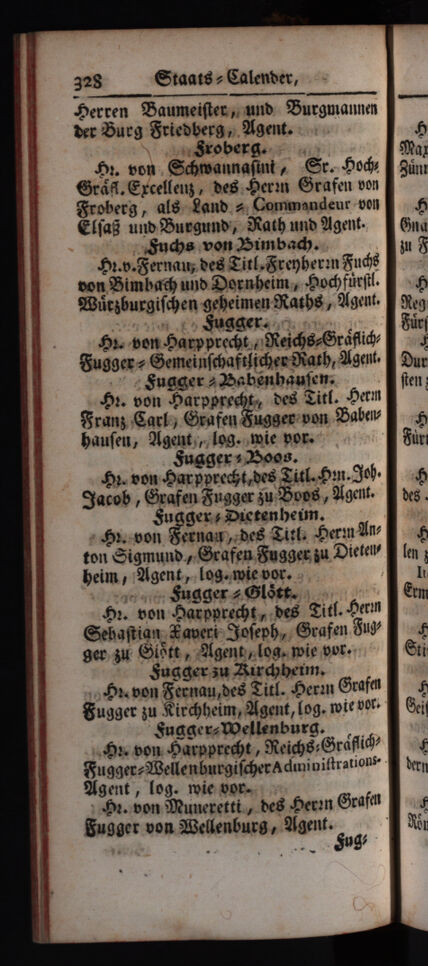 328 Staats-Calender,
Herren Baumeister, und Burgmannen
der Burg Friedberg, Agent.
Froberg.
Hr. von Schwannasini, Sr. Hoch-
Gräfl. Excellenz, des Herrn Grafen von
Froberg, als Land-Commandeur von
Elsaß und Burgund, Rath und Agent.
Fuchs von Bimbach.
Hr. v. Fernau, des Titl. Freyherrn Fuchs
von Bimbach und Dornheim, Hochfürstl.
Würzburgischen geheimen Raths, Agent.
Fugger.
Hr. von Harpprecht, Reichs-Gräflich-
Fugger-Gemeinschaftlicher Rath, Agent.
Fugger-Babenhausen.
Hr. von Harpprecht, des Titl. Herrn
Franz Carl, Grafen Fugger von Baben-
hausen, Agent, log. wie vor.
Fugger-Boos.
Hr. von Harpprecht, des Titl. Hrn. Joh.
Jacob, Grafen Fugger zu Boos, Agent.
Fugger-Dietenheim.
Hr. von Fernau, des Titl. Herrn An-
ton Sigmund, Grafen Fugger zu Dieten-
heim, Agent, log. wie vor.
Fugger-Glött.
Hr. von Harpprecht, des Titl. Herrn
Sebastian Xaveri Joseph, Grafen Fug-
ger zu Glött, Agent, log. wie vor.
Fugger zu Kirchheim.
Hr. von Fernau, des Titl. Herrn Grafen
Fugger zu Kirchheim, Agent, log. wie vor.
Fugger-Wellenburg.
Hr. von Harpprecht, Reichs-Gräflich-
Fugger-Wellenburgischer Administrations-
Agent, log. wie vor.
Hr. von Muneretti, des Herrn Grafen
Fugger von Wellenburg, Agent.
Fug-